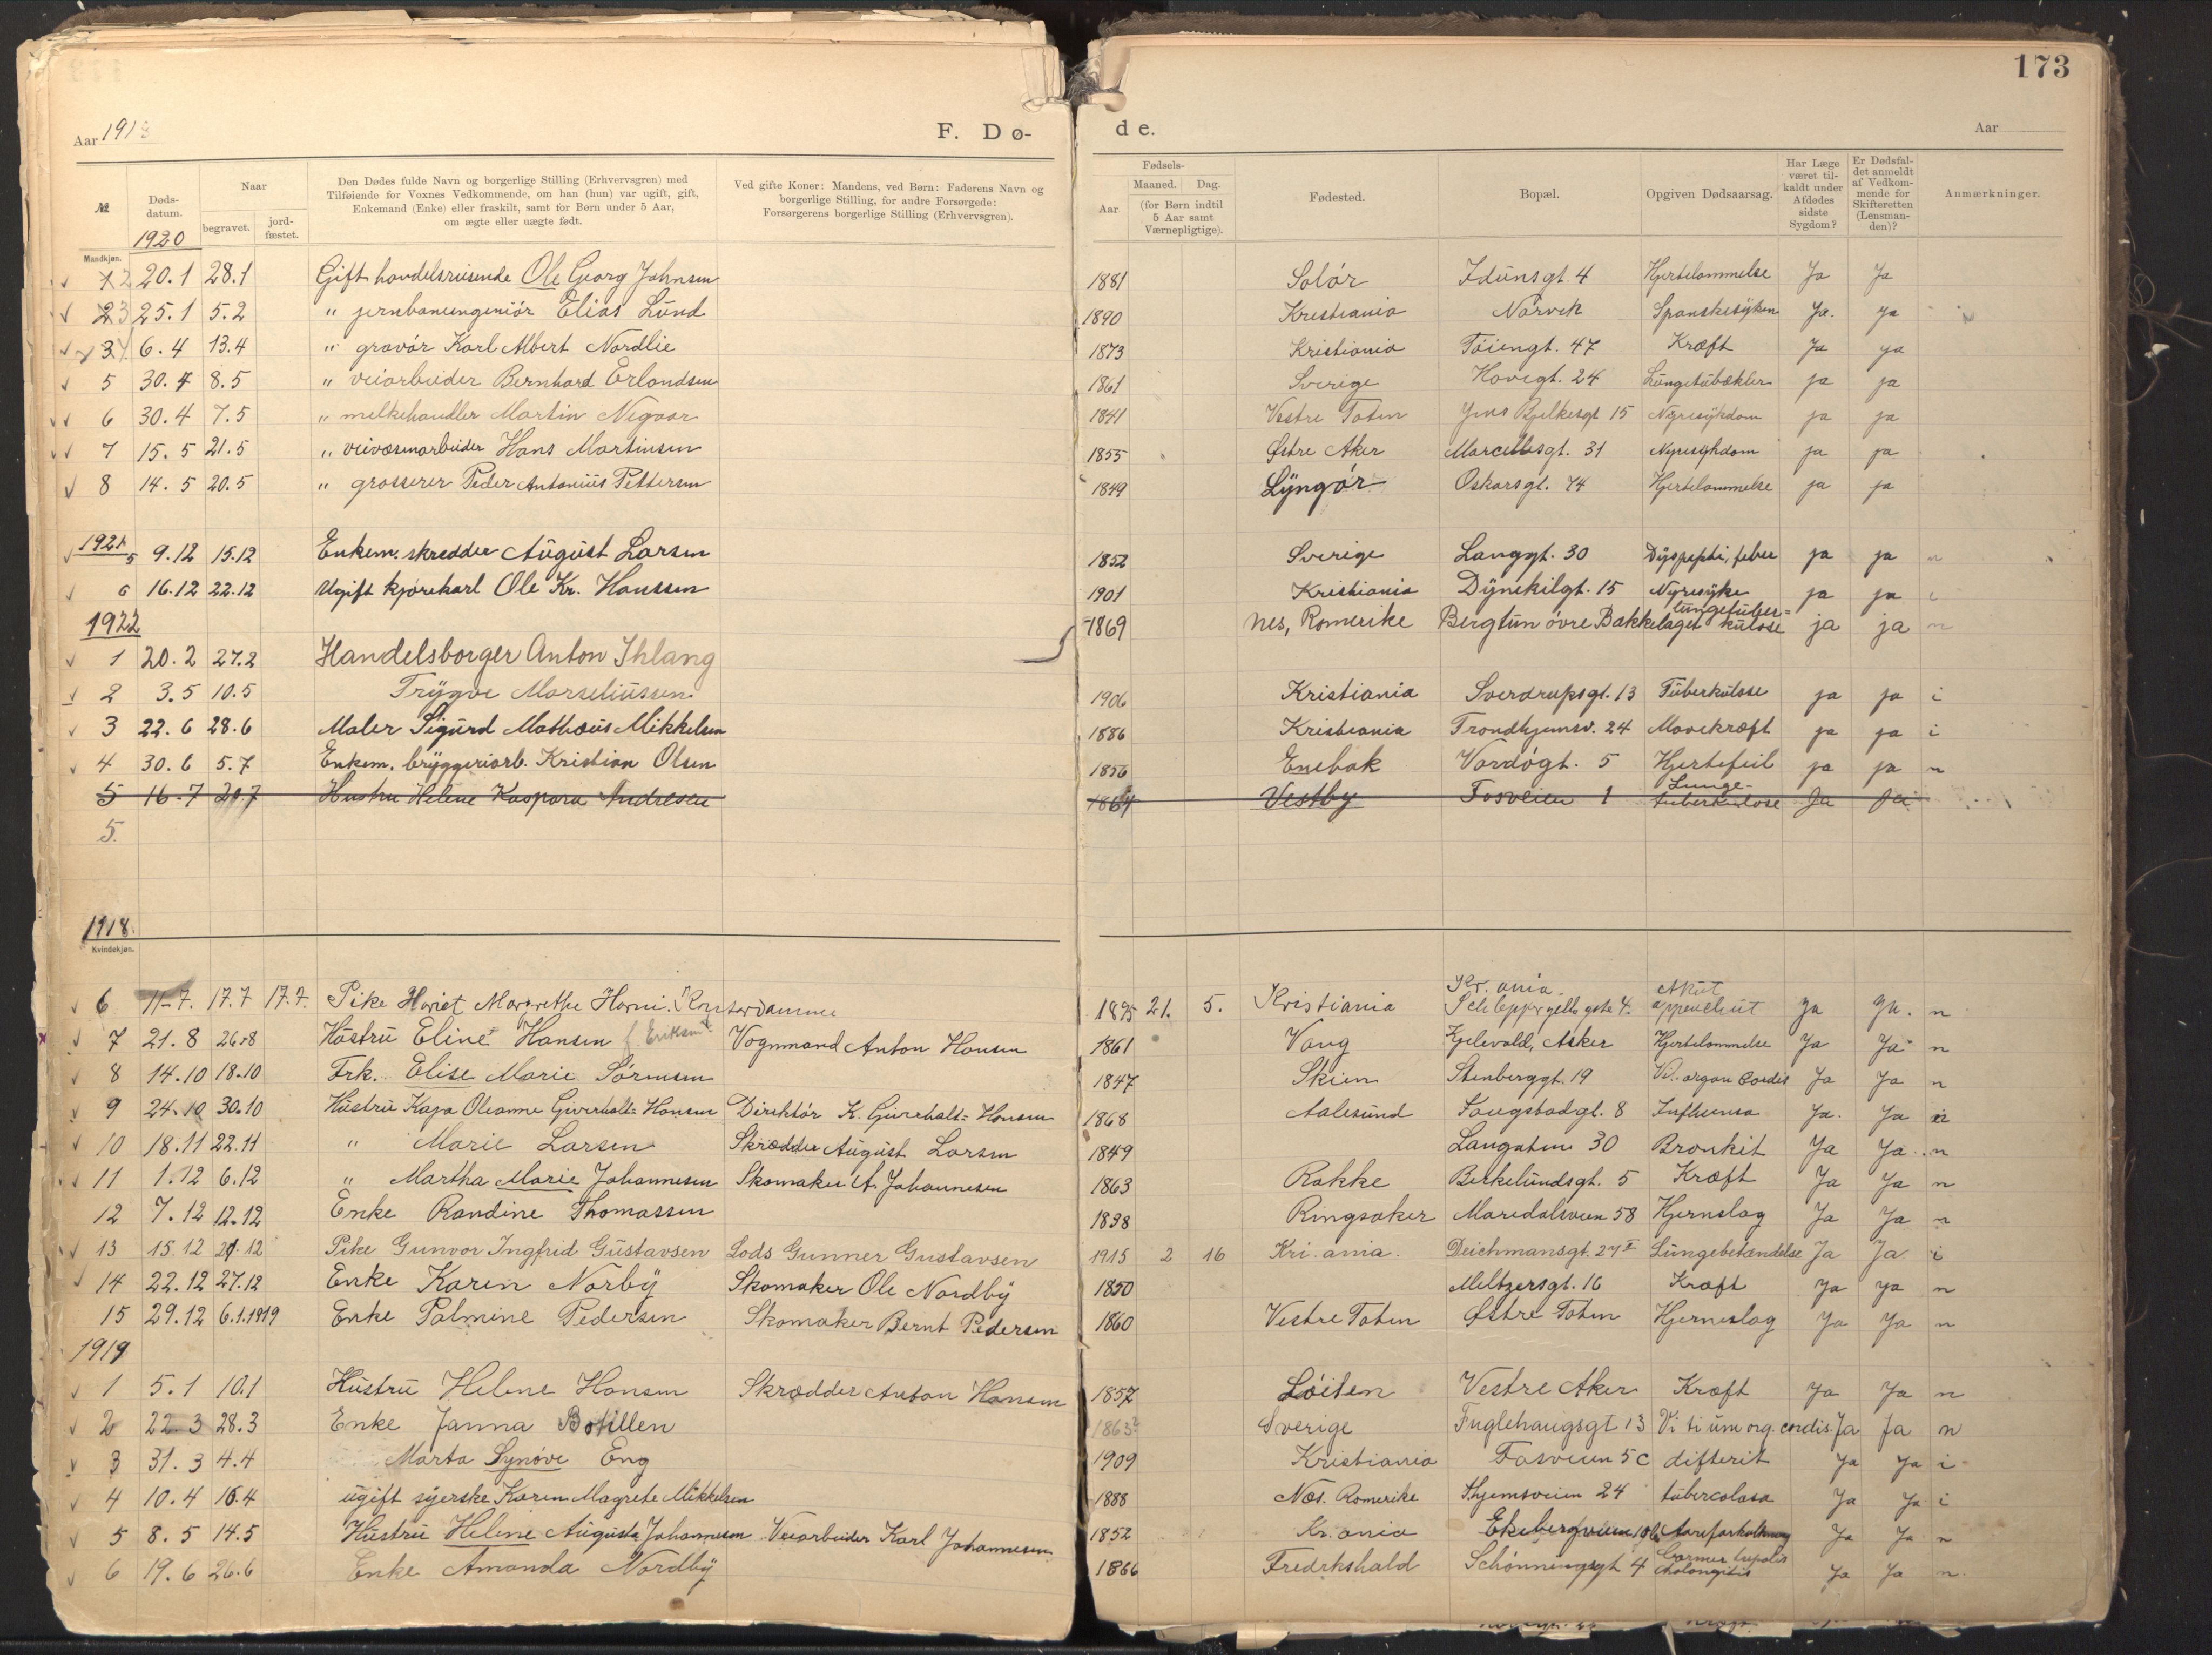 173
Aar 1918 F. Dø- de. Aar
№ Døds-datum. Naar begravet. jord-fæstet. Den Dødes fulde Navn og borgerlige Stilling (Erhvervsgren) med Tilføiende for Voxnes Vedkommende, om han (hun) var ugift, gift, Enkemand (Enke) eller fraskilt, samt for Børn under 5 Aar, om ægte eller uægte født. Ved gifte Koner: Mandens, ved Børn: Faderens Navn og borgerlige Stilling, for andre Forsørgede: Forsørgerens borgerlige Stilling (Erhvervsgren). Fødsels- Aar Maaned. Dag. (for Børn indtil 5 Aar samt Værnepligtige). Fødested. Bopæl. Opgiven Dødsaarsag. Har Læge været til-kaldt under Afdødes sidste Sygdom? Er Dødsfal-det anmeldt af Vedkom-mende for Skifteretten (Lensman-den)? Anmærkninger.
1920
Mandkjøn.
2 20.1 28.1 Gift handelsreisende Ole Georg Johnsen 1881 Solør Idunsgt. 4 Hjertelammelse Ja Ja
3 25.1 5.2 " jernbaneingeniør Elias Lund 1890 Kristiania Narvik Spanskesyken Ja. ja
6.4 13.4 " gravør Karl Albert Nordlie 1873 Kristiania Tøiengt. 47 Kræft Ja ja
5 30.4 8.5 " veiarbeider Bernhard Erlandsen 1861 Sverige Hovegt. 24 Lungetubekler ja ja
6 30.4 7.5 " melkehandler Martin Negaar 1841 Vestre Toten Jens Bjelkesgt 15 Nyresykdom ja ja
7 15.5 21.5 " veivæsenarbeider Hans Martinsen 1855 Østre Aker Marcellesgt. 31 Nyresykdom ja ja
8 14.5 20.5 " grosserer Peder Antonius Pettersen 1849 Lyngør Oskarsgt. 74 Hjertelammelse ja ja
1921
5 9.12 15.12 Enkem. skredder August Larsen 1852 Sverige Langgt. 30 Dyspepsi, feber ja ja n
6 16.12 22.12 Ugift kjørekarl Ole Kr. Hanssen 1901 Kristiania Dynekilgt. 15 Nyresyke ja ja i
1922
1 20.2 27.2 Handelsborger Anton Ihlang 1869 Nes, Romerike Bergtun øvre Bakkelaget lungetuber=kulose ja ja n
2 3.5 10.5 Trygve Marseliussen 1906 Kristiania Sverdrupsgt. 13 Tuberkulose ja ja i
3 22.6 28.6 Maler Sigurd Mathæus Mikkelsen 1886 Kristiania Trondhjemsv. 24 Mavekræft ja ja i
4 30.6 5.7 Enkem. bryggeriarb. Kristian Olsen 1856 Enebak Vardøgt. 5 Hjertefeil ja ja n
5 16.7 20.7 Hustru Helene Kaspara Andresen 1864 Vestby Fosveien 1 Lunge-tuberkulose Ja Ja
5.
1918.
Kvindekjøn.
6 11-7. 17.7 17.7. Pike Hariet Margrethe Horni. Kontordamme 1895 21. 5. Kristiania Kr.ania. Schleppegrells gate 4. Akut appendicit Ja Ja. n
7 21.8 26.8 Hustru Eline Hansen f. Eriksen Vognmand Anton Hansen 1861 Vang Kjelevold, Asker Hjertelammelse Ja Ja n
8 14.10 18.10 Frk. Elise Marie Sørensen 1847 Skien Stenberggt. 19 Vit. organ Cordis Ja Ja n
9 24.10 30.10 Hustru Kaja Oleanne Giverholt=Hansen Direktør K. Giverholt=Hansen 1868 Aalesund Langstadgt. 8 Influensa Ja. Ja n
10 18.11 22.11 " Marie Larsen Skrædder August Larsen 1849 Langaten 30 Bronkit Ja Ja n
11 1.12 6.12 " Martha Marie Johannesen Skomaker A. Johannesen 1863 Rakke Birkelundsgt. 5 Kræft Ja Ja n
12 7.12 12.12 Enke Randine Thomassen 1838 Ringsaker Maridalsveien 58 Hjernslag Ja Ja n
13 15.12 21.12 Pike Gunvor Ingfrid Gustavsen Lods Gunner Gustavsen 1915 2 16 Kri.ania. Deichmansgt. 27 II Lungebetændelse Ja Ja i
14 22.12 27.12 Enke Karen Norby Skomaker Ole Nordby 1850 Meltzersgt. 16 Kræft Ja ja n
15 29.12 6.1.1919 Enke Palmine Pedersen Skomaker Bernt Pedersen 1860 Vestre Toten Østre Toten Hjerneslag Ja Ja n
1919
1 5.1 10.1 Hustru Helene Hansen Skrædder Anton Hansen 1857 Løiten Vestre Aker Kræft Ja Ja n
2 22.3 28.3 Enke Janna Botillen 1863? Sverige Fuglehaugsgt 13 Vitium org. cordis. Ja Ja n
3 31.3 4.4 Marta Synøve Eng 1909 Kristiania Fosveien 5c difterit Ja Ja i
4 10.4 16.4 ugift syerske Karen Magrete Mikkelsen 1888 Næs. Romerike Thjemsveien 24 tubercolosa Ja Ja i
5 8.5 14.5 Hustru Helene Augusta Johannesen Veiarbeider Karl Johannesen 1852 Kr.ania Ekebergveien Aareforkalkning Ja Ja n
6 19.6 26.6 Enke Amanda Nordby 1866 Fredrkshald Schønningsgt 4 cholangitis Ja Ja n.